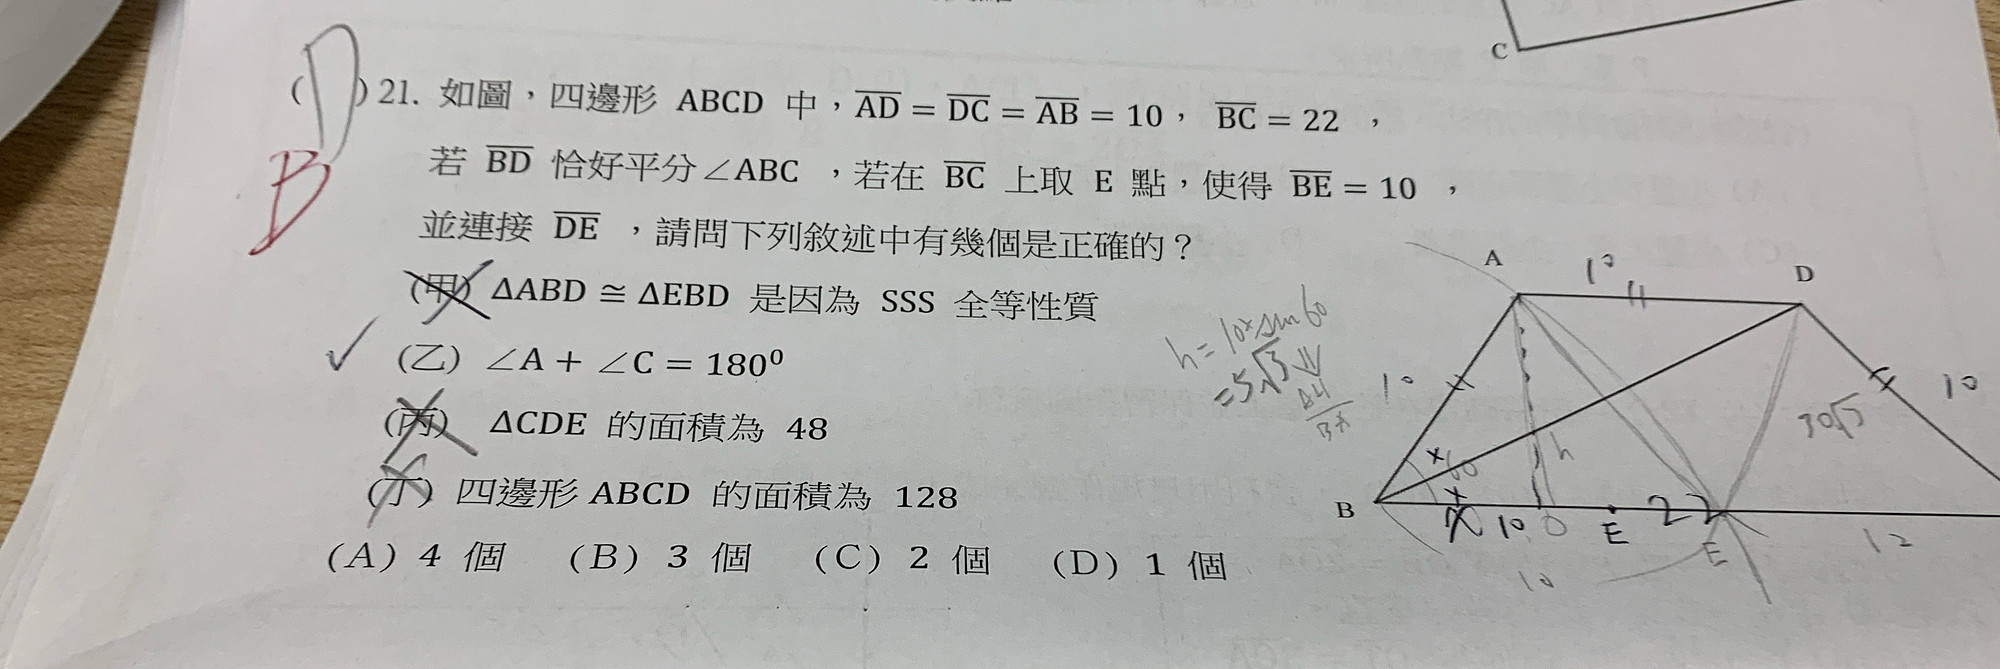 C
(D) 21. 如圖，四邊形 ABCD 中，AD = DC = AB = 10， BC = 22 ，
B
若 BD 恰好平分∠ABC ，若在 BC 上取 E 點，使得 BE = 10 ，
並連接 DE ，請問下列敘述中有幾個是正確的？
(甲) ΔABD ≅ ΔEBD 是因為 SSS 全等性質
✓ (乙) ∠A + ∠C = 180⁰
(丙) ΔCDE 的面積為 48
(丁) 四邊形 ABCD 的面積為 128
(A) 4 個 (B) 3 個 (C) 2 個 (D) 1 個
h = 10×sin 60
= 5√3
A 10 D
10 10
60 h
B 10 E 22
E 12
10